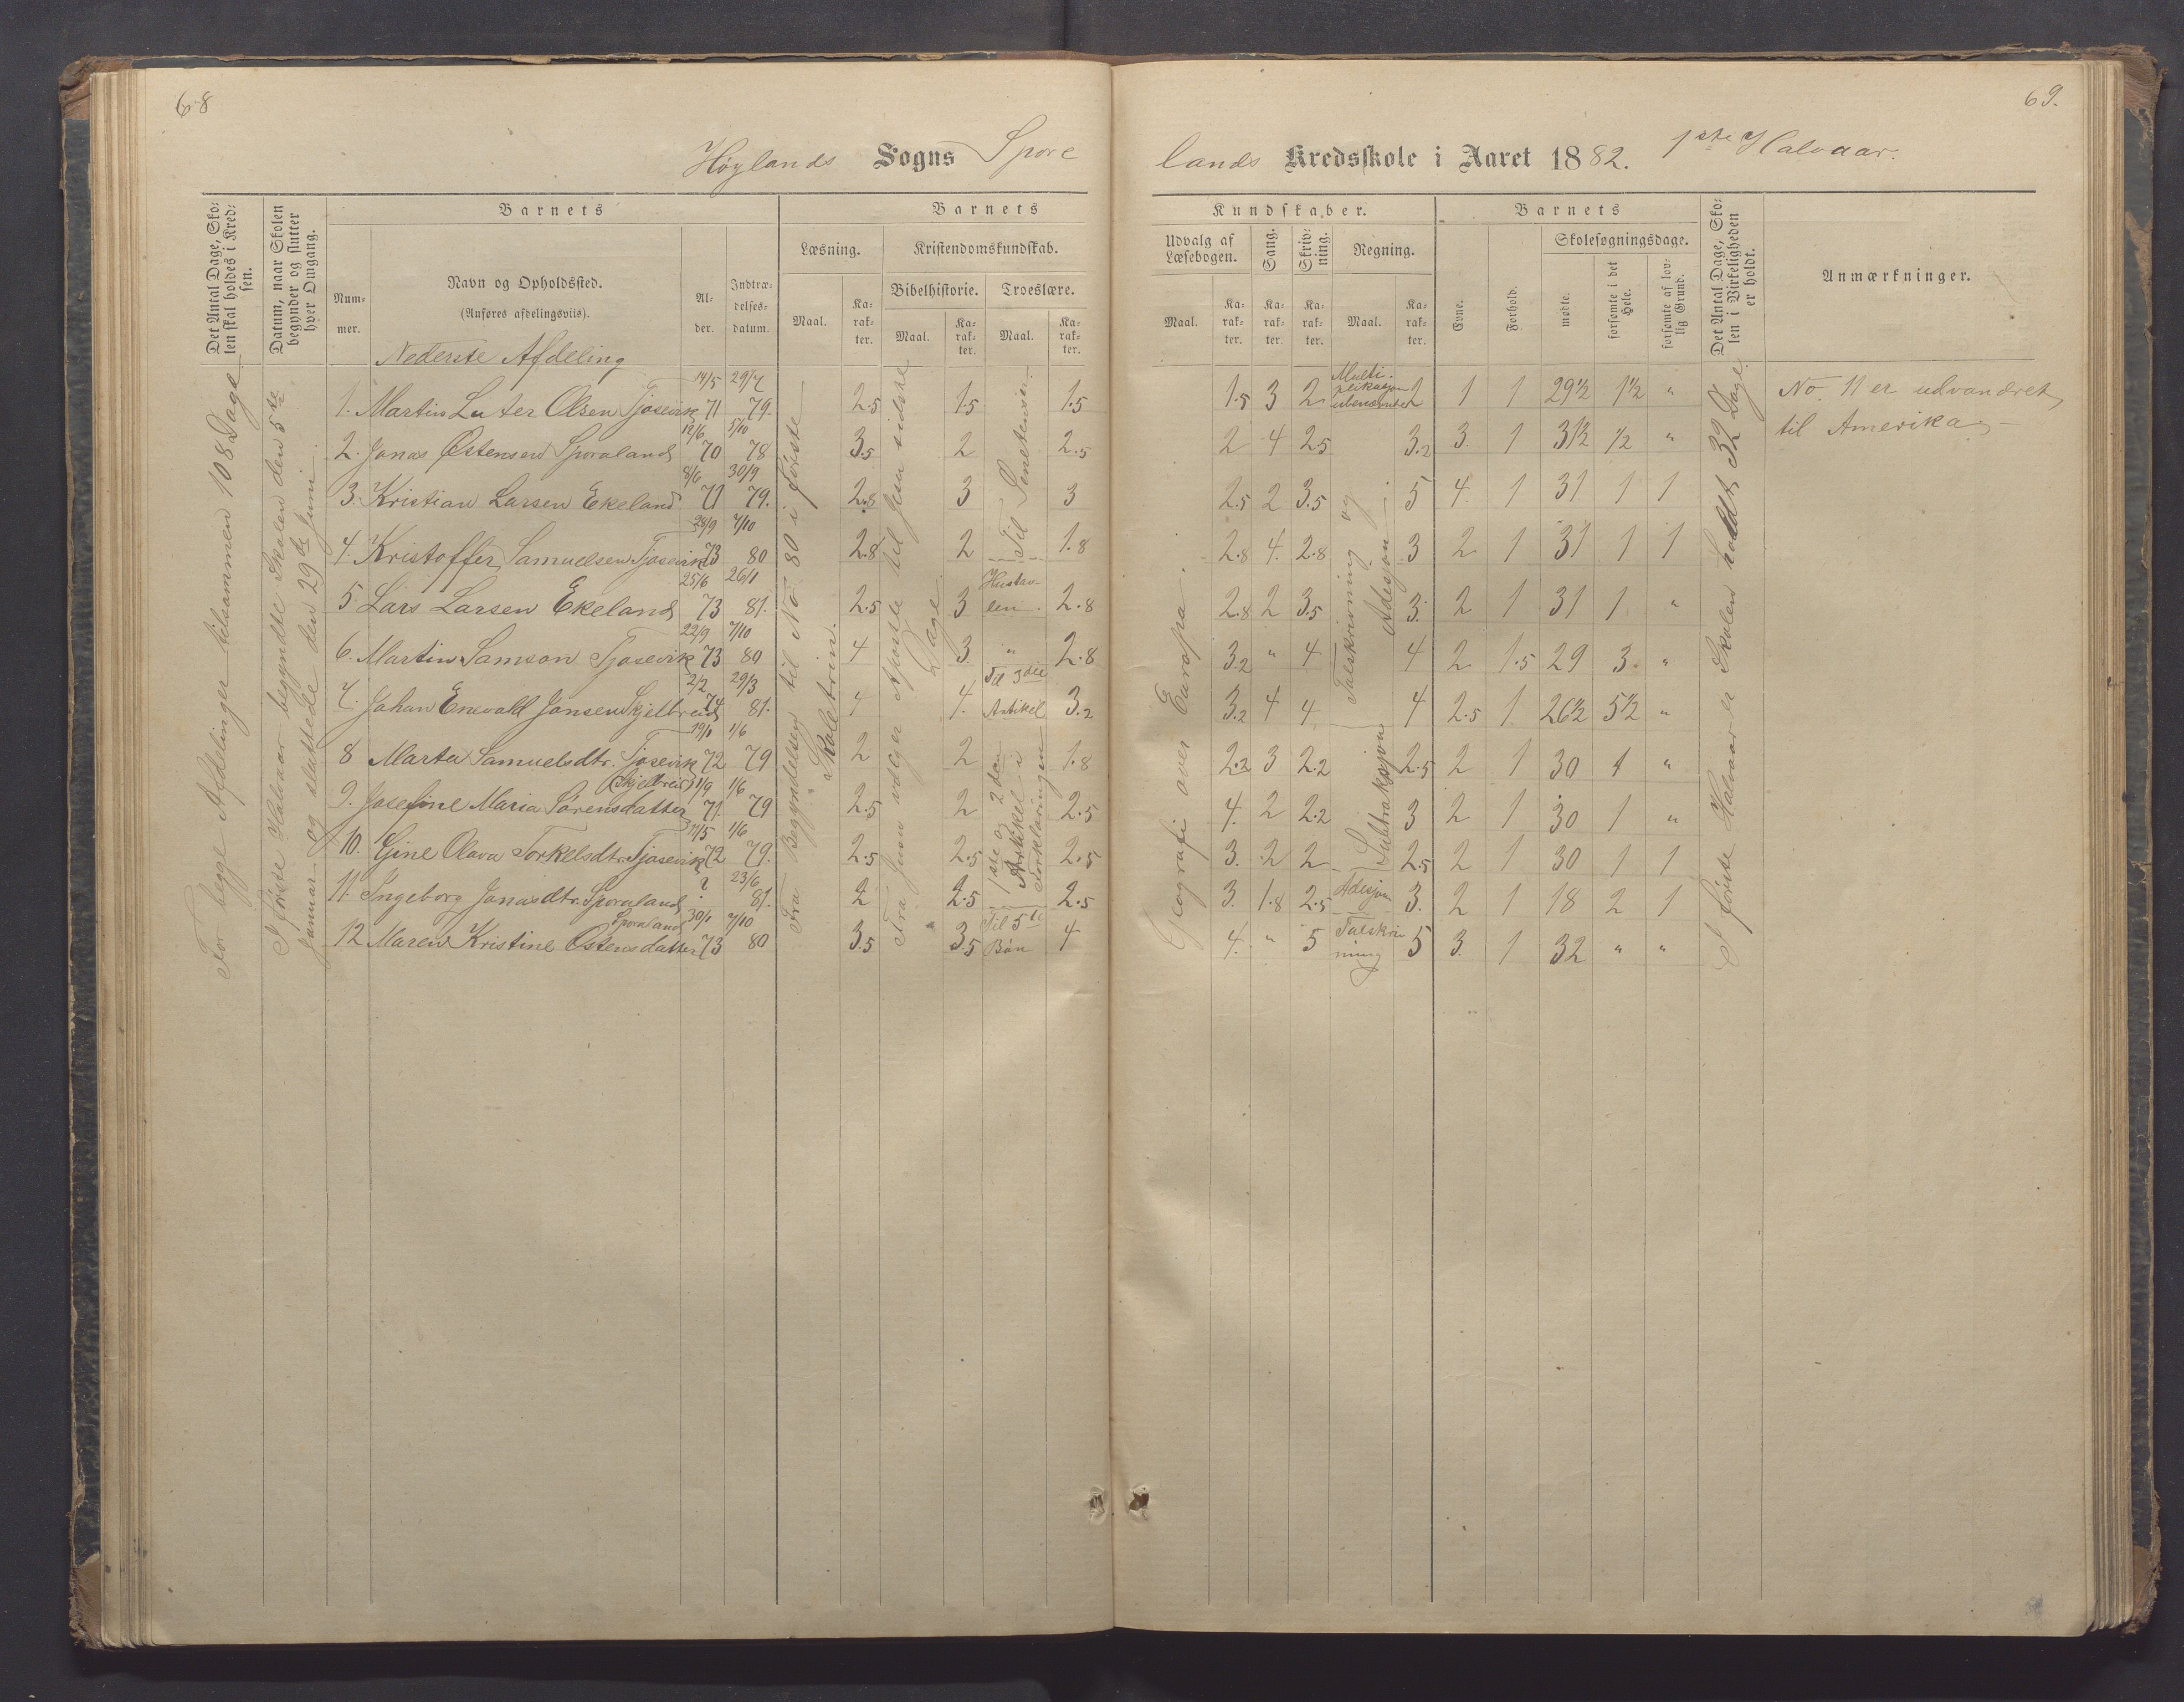 68
69.
Høylands Sogns Spore
lands Kredsskole i Aaret 1882. 1ste Halvaar.
Det Antal Dage, Sko-
len skal holdes i Kred-
sen.
Datum, naar Skolen
begynder og slutter
hver Omgang.
Barnets
Num-
mer.
Navn og Opholdssted.
(Anføres afdelingsviis).
Al-
der.
Indtræ-
delses-
datum.
Barnets
Læsning.
Maal.
Ka-
rak-
ter.
Kristendomskundskab.
Bibelhistorie.
Maal.
Ka-
rak-
ter.
Troeslære.
Maal.
Ka-
rak-
ter.
Kundskaber.
Udvalg af
Læsebogen.
Maal.
Ka-
rak-
ter.
Sang.
Ka-
rak-
ter.
Skriv-
ning.
Ka-
rak-
ter.
Regning.
Maal.
Ka-
rak-
ter.
Barnets
Evne.
Forhold.
Skolesøgningsdage.
mødte.
forsømte i det
Hele.
forsømte af lov-
lig Grund.
Det Antal Dage, Sko-
len i Virkeligheden
er holdt.
Anmærkninger.
Nederste Afdeling
For begge Afdelinger tilsammen 108 Dage
I første Halvaar begyndte Skolen den 5te
Januar og sluttede den 29de Juni.
Fra Begyndelsen til No 80 i første
Skoletrin.
Fra Jesus vælger Apostle til Jesu sidste
Dage.
Geografi over Europa.
I første Halvaar er Skolen holdt 32 Dage
1. Martin Luter Olsen Tjosevik 14/5 71 29/7 79. 2.5 1.5 1.5 1.5 3 2 Multi-
plikasjon
ubenævnte 2 1 1 29½ 1½ "
2. Jonas Østensen Sporaland 12/6 70 5/10 78 3.5 2 2.5 2 4 2.5 3.2 3. 1 31½ ½ "
3. Kristian Larsen Ekeland 8/6 71 30/9 79. 2.8 3 3 2.5 2 3.5 5 4. 1 31 1 1
4. Kristoffer Samuelsen Tjosevik 28/9 73 7/10 80 2.8 2 1.8 2.8 4. 2.8 3 2 1 31 1 1
5 Lars Larsen Ekeland 25/6 73 26/1 81. 2.5 3 Hustav-
len. 2.8 2.8 2 3.5 3. 2 1 31 1 "
6. Martin Samson Tjosevik 22/9 73 7/10 80 4 3 " 2.8 3.2 " 4 4 2 1.5 29 3. "
7. Johan Enevald Jonsen Skjelbreid 2/2 74 29/3 81. 4 4. Til 3die
Artikel 3.2 3.2 4 4 4 2.5 1 26½ 5½ "
8 Marta Samuelsdtr. Tjosevik 19/1 72 1/6 79 2 2 1.8 2.2 3 2.2 2.5 2 1 30 1 "
9. Josefine Maria Sørensdatter (Skjelbreid) 31/9 71. 1/6 79 2.5 2 2.5 4. 2 2.2 3 2 1 30 1 "
10. Gine Olava Torkelsdtr. Tjosevik 11/5 72 1/6 79. 2.5 2.5 2.5 3. 2 2 2.5 2 1 30 1 1
11 Ingeborg Jonasdtr. Sporaland ? 23/6 81. 2 2.5 2.5 3. 1.8 2.5 Adisjon 3. 2 1 18 2 1
12 Maren Kristine Østensdatter Sporaland 30/1 73 7/10 80 3.5 3.5 Til 5te
Bøn 4 4. " 5 Talskriv
ning 5 3. 1 32 " "
Til Senetensen
1ste og 2den
Artikel i
Forklaringen
Talskrivning og
Adisjon
Subtraksjon
No. 11 er udvandret
til Amerika